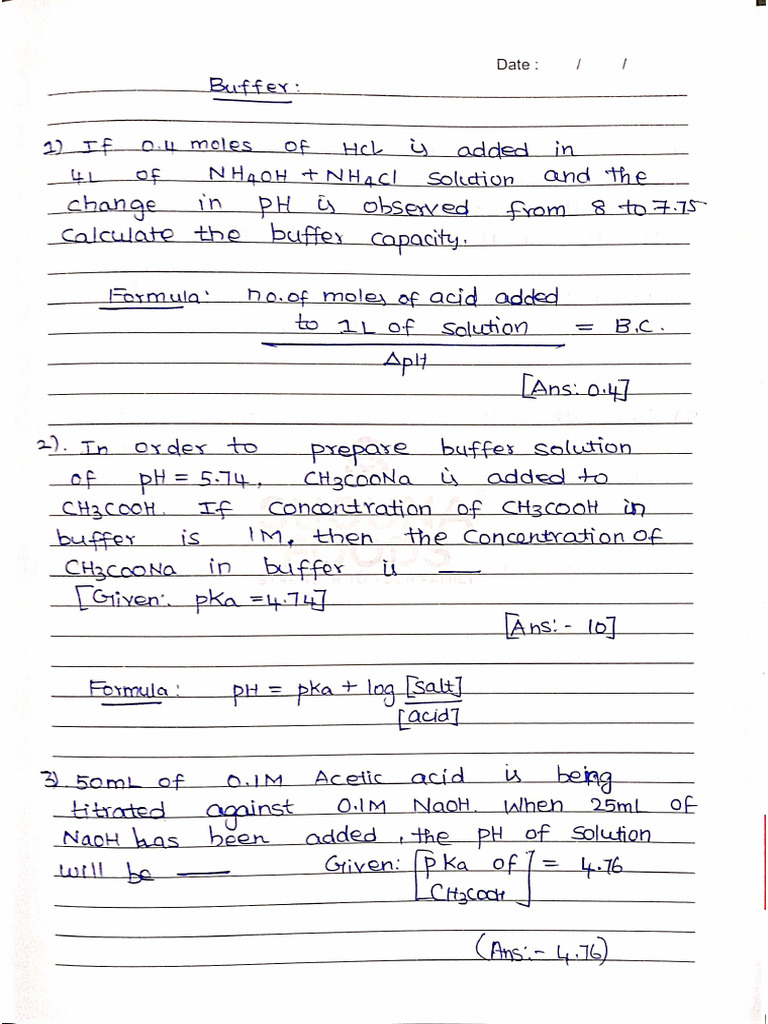 Date : / /
Buffer:
1) If 0.4 moles of HCL is added in
4L of NH4OH + NH4Cl solution and the
change in pH is observed from 8 to 7.75
Calculate the buffer capacity.
Formula: no. of moles of acid added
to 1L of solution = B.C.
ΔpH
[Ans: 0.4]
2). In order to prepare buffer solution
of pH = 5.74, CH3COONa is added to
CH3COOH. If Concentration of CH3COOH in
buffer is 1M, then the Concentration of
CH3COONa in buffer is ___
[Given: pKa = 4.74]
[Ans:- 10]
Formula: pH = pka + log [Salt]
[acid]
3) 50mL of 0.1M Acetic acid is being
titrated against 0.1M NaOH. When 25mL of
NaOH has been added, the pH of solution
will be ___ Given: [pKa of ] = 4.76
[CH3COOH]
(Ans:- 4.76)